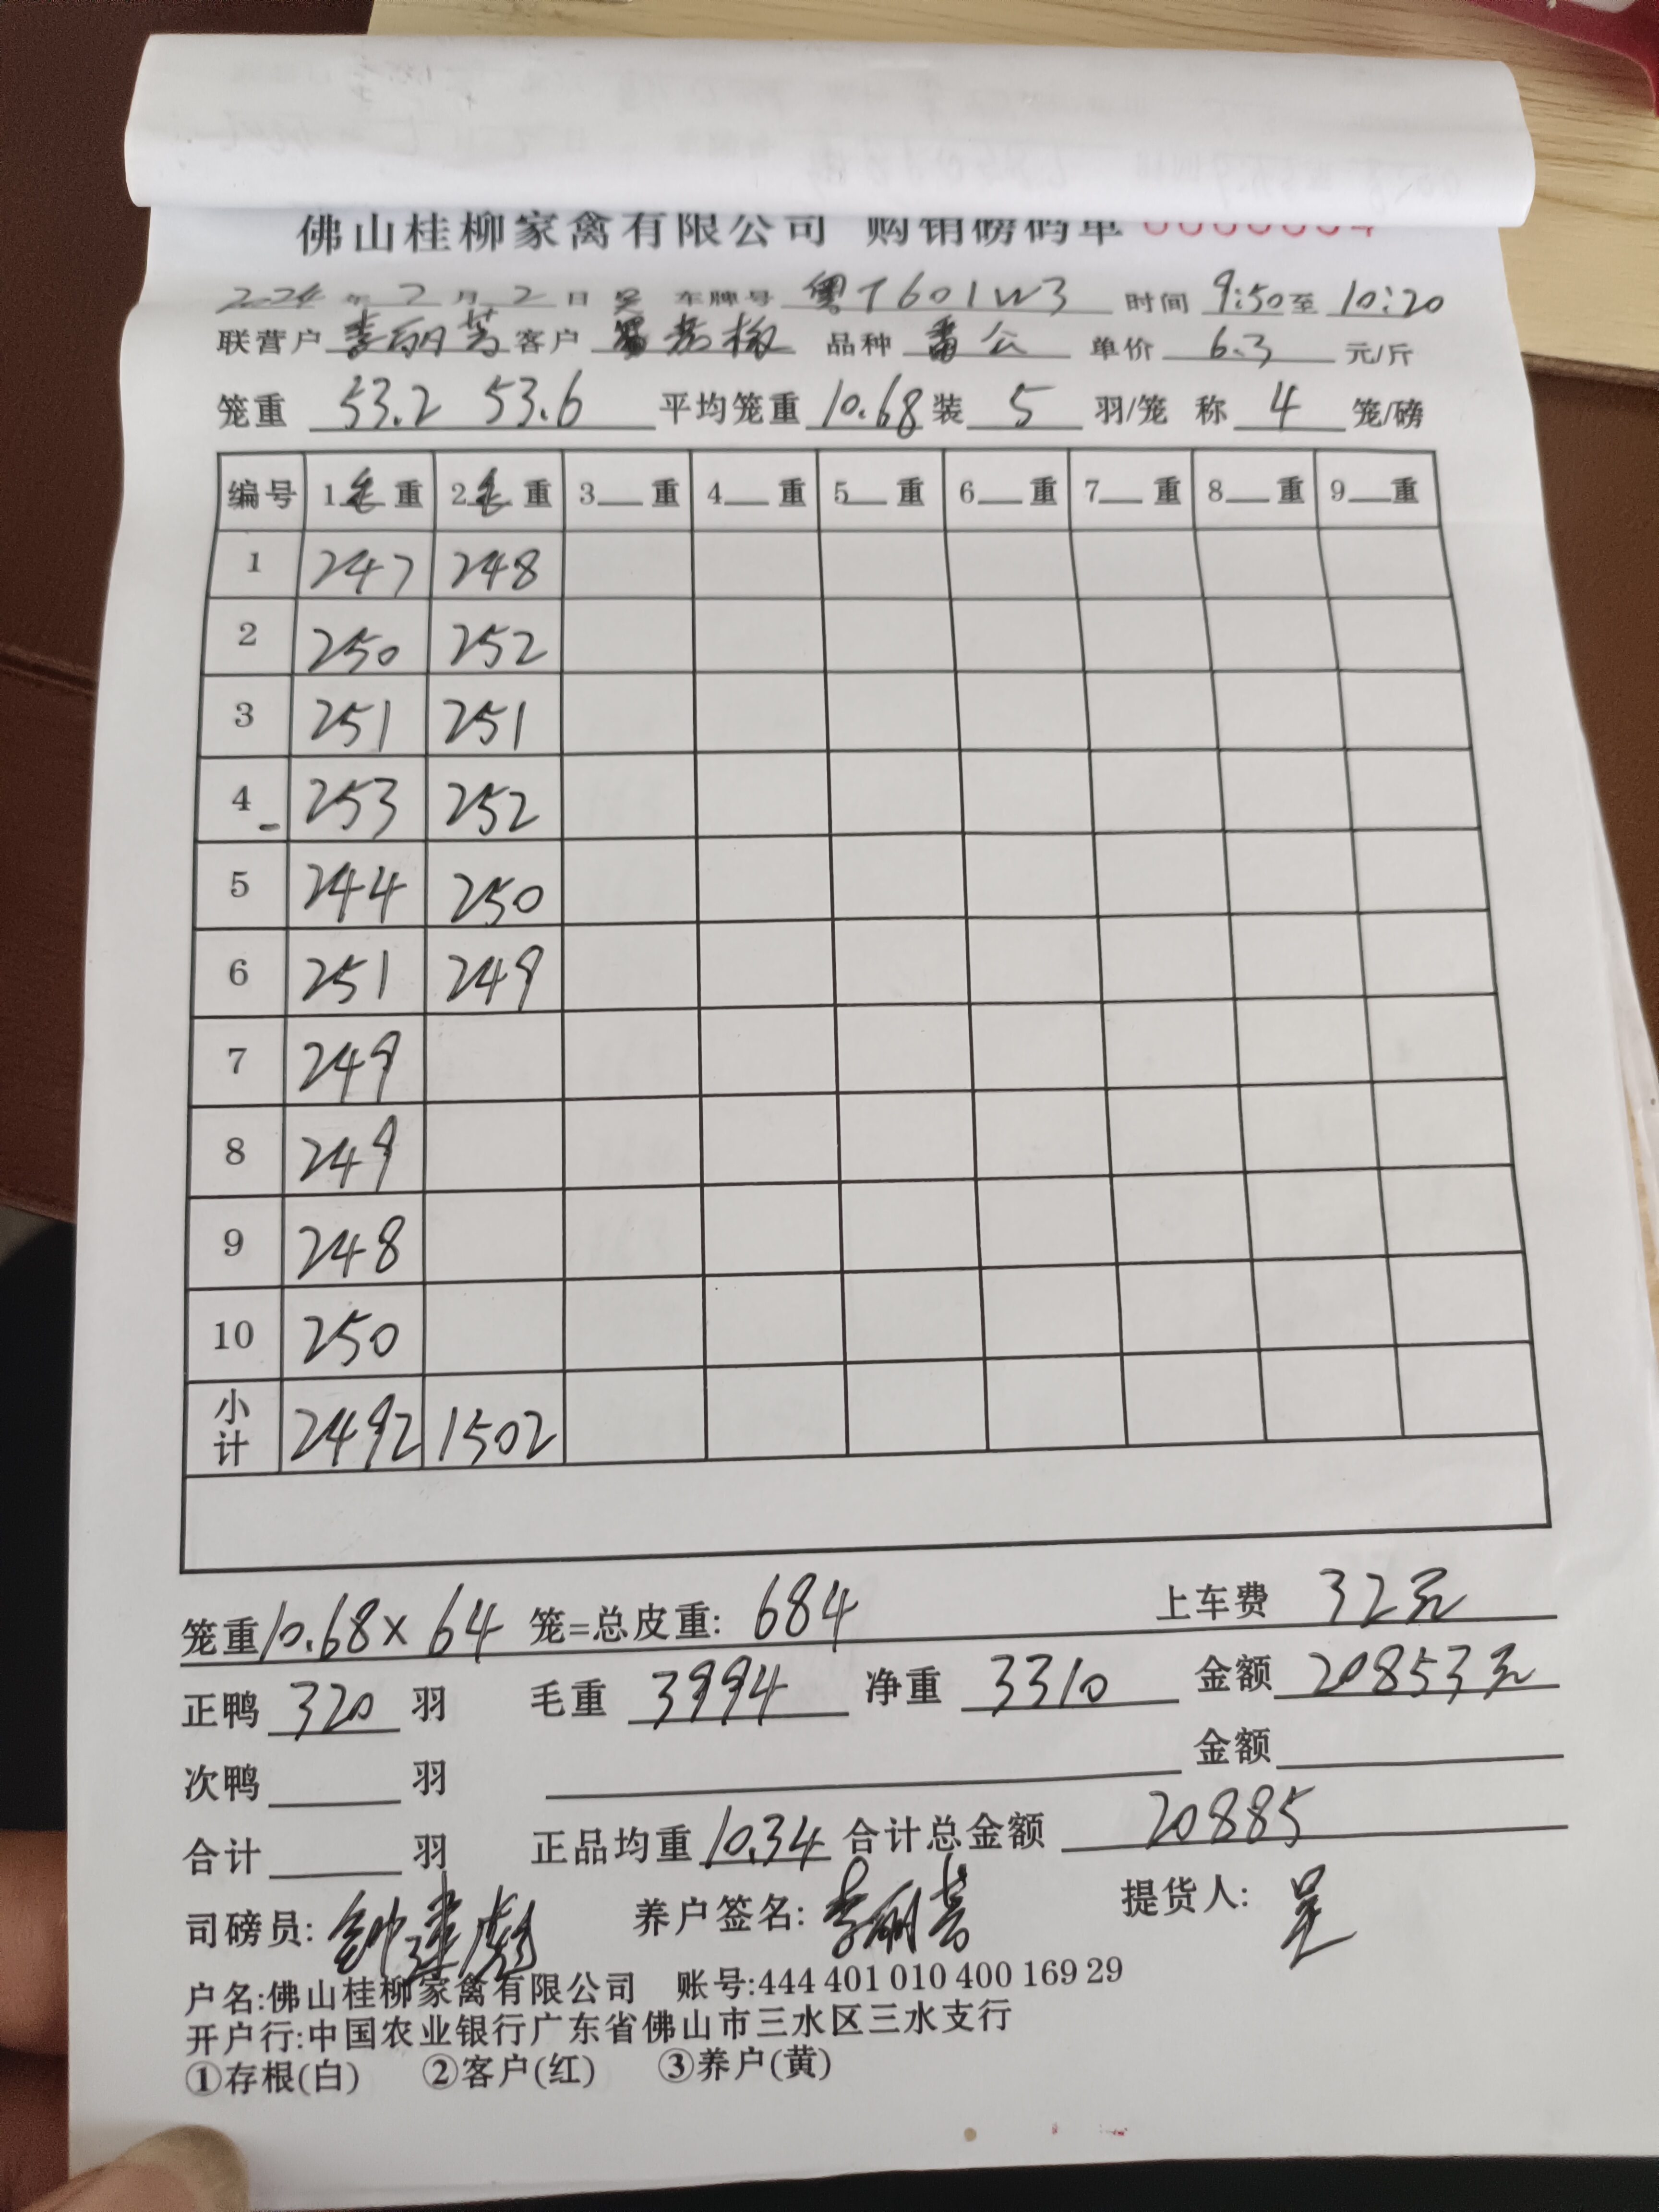 佛山桂柳家禽有限公司 购销磅码单
2024 年 2 月 2 日 车牌号 粤T601W3 时间 9:50 至 10:20
联营户 李丽芳 客户 品种 番公 单价 6.3 元/斤
笼重 53.2 53.6 平均笼重 10.68 装 5 羽/笼 称 4 笼/磅
编号 1毛重 2毛重 3__重 4__重 5__重 6__重 7__重 8__重 9__重
1 247 248
2 250 252
3 251 251
4 253 252
5 244 250
6 251 249
7 249
8 249
9 248
10 250
小计 2492 1502
笼重 10.68 × 64 笼=总皮重: 684 上车费 32元
正鸭 320 羽 毛重 3994 净重 3310 金额 20853元
次鸭 羽 金额
合计 羽 正品均重 10.34 合计总金额 20885
司磅员: 养户签名: 李丽芳 提货人:
户名:佛山桂柳家禽有限公司 账号:444 401 010 400 169 29
开户行:中国农业银行广东省佛山市三水区三水支行
①存根(白) ②客户(红) ③养户(黄)